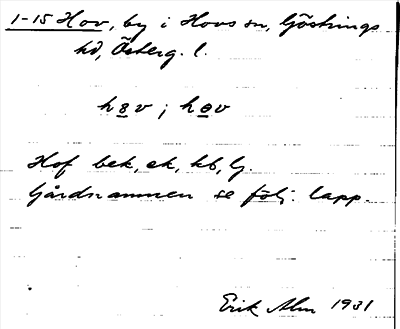 1-15 Hov, by i Hovs sn, Göstrings
hd, Österg. l.
h8v ; hov
Hof bek, ek, kb, lj.
Gårdnamnen se följ. lapp.
Erik Alm 1931